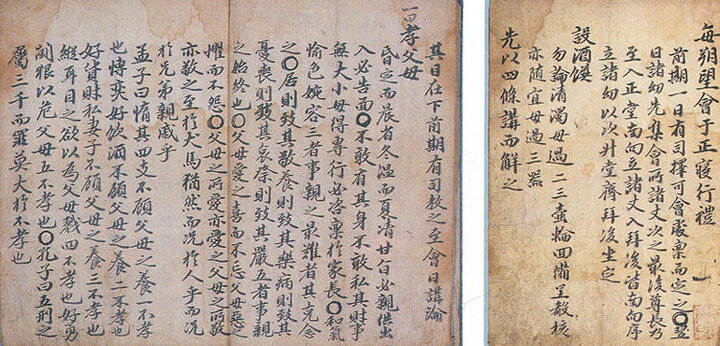 每朔望會于正寢行禮
前期一日有司擇可會處稟而定之〇翌
日諸幼先集會所諸丈次之最後尊長乃
至入正堂南向立諸丈入拜後皆南向序
立諸幼以次升堂齊拜後坐定
設酒饌
勿論清濁毋過二三壺輪回備呈殽核
亦隨宜毋過三器
先以四條講而解之
其目在下前期有司教之至會日講論
一曰孝父母
昏定而晨省冬溫而夏凊甘旨必親供出
入必告面〇不敢有其身不敢私其財事
無大小毋得專行必咨稟於家長〇和氣
愉色婉容三者事親之最難者其克念
之〇居則致其敬養則致其樂病則致其
憂喪則致其哀祭則致其嚴五者事親
之始終也〇父母愛之喜而不忘父母惡之
懼而不怨〇父母之所愛亦愛之父母之所敬
亦敬之至於犬馬猶然而況於人乎而況
於兄弟親戚乎
孟子曰惰其四支不顧父母之養一不孝
也博奕好飲酒不顧父母之養二不孝也
好貨財私妻子不顧父母之養三不孝也
縱耳目之欲以為父母戮四不孝也好勇
鬪狠以危父母五不孝也〇孔子曰五刑之
屬三千而罪莫大於不孝也